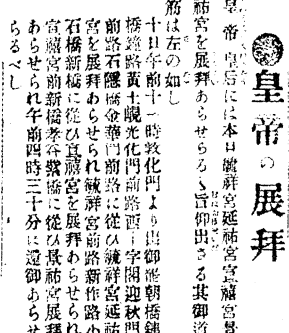 皇帝の展拜
皇帝 皇后には本日毓祥宮延祐宮宣禧宮景
祐宮を展拜あらせらるゝ旨仰出さる其御道
筋は左の如し
十日午前十一時敦化門より出御罷朝橋鐵
橋鐘路黄土峴光化門前路西十字閣迎秋門
前路石隱橋金華門前路に從ひ毓祥宮延祐
宮を展拜あらせられ毓祥宮前路新作路小
石橋新橋に從ひ宣禧宮展拜あらせられ
宣禧宮前新橋孝谷警橋に從ひ景祐宮展拜
あらせられ午前四時三十分に還御あらせ
らるべし